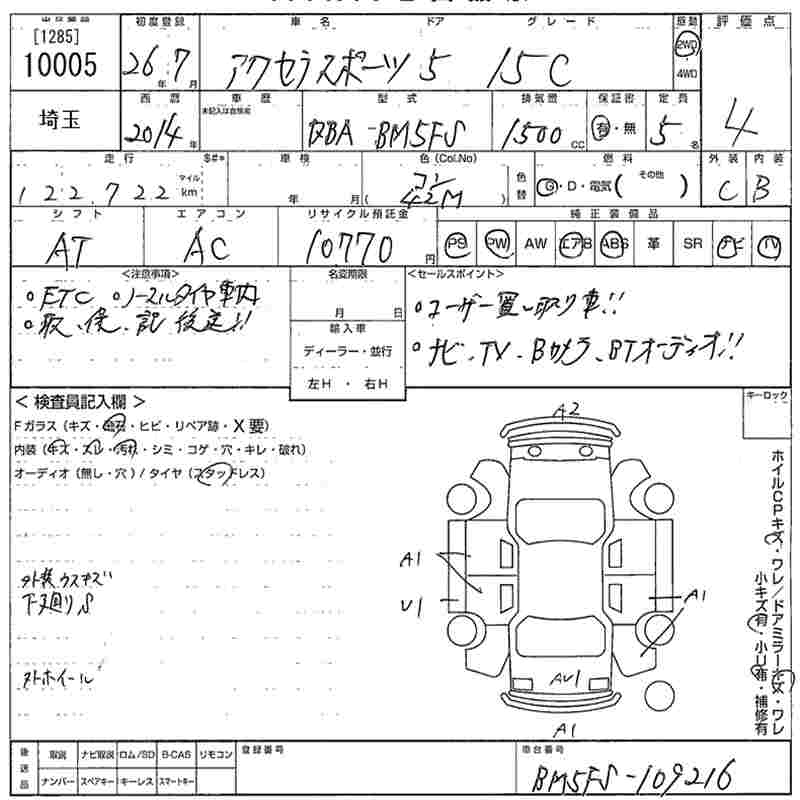 出品番号 初度登録 車名 ドア グレード 駆動 評価点
[1285]
10005 26年7月 アクセラスポーツ 5 15C 2WD・4WD 4
埼玉 西暦 車歴 型式 排気量 保証書 定員
未記入は自家用
2014年 DBA-BM5FS 1500cc 有・無 5名
走行 $#* 車検 色(Col.No) 色替 燃料 外装 内装
122,722 マイル km 年 月 ( 42M ) G・D・電気( その他 ) C B
シフト エアコン リサイクル預託金 純正装備品
AT AC 10770円 PS PW AW エアB ABS 革 SR ナビ TV
<注意事項> 名変期限 <セールスポイント>
・ETC ・ノーマルタイヤ車内
・取、保、記 後送!! 月 日 ・ユーザー買い取り車!!
輸入車
ディーラー・並行 ・ナビ、TV、Bカメラ、BTオーディオ!!
左H・右H
<検査員記入欄> キーロック
Fガラス(キズ・飛石・ヒビ・リペア跡・X要)
内装(キズ・スレ・汚れ・シミ・コゲ・穴・キレ・破れ)
オーディオ(無し・穴)/タイヤ(スタッドレス)
外装ウスキズ
下廻りS
外ホイール
A2
A1
U1
A1
AU1
A1
ホイルCPキズ・ワレ/ドアミラーキズ・ワレ
小キズ有・小U有・補修有
後送品 取説 ナビ取説 ロム/SD B-CAS リモコン 登録番号 車台番号
ナンバー スペアキー キーレス スマートキー BM5FS-109216